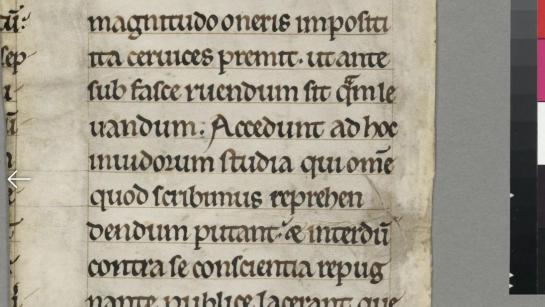 magnitudo oneris impositi
ita ceruices premit. ut ante
sub fasce ruendum sit q̄m le
uandum. Accedunt ad hoc
inuidorum studia qui om̄e
quod scribimus reprehen
dendum putant. & interdū
contra se conscientia repug
nante publice lacerant que